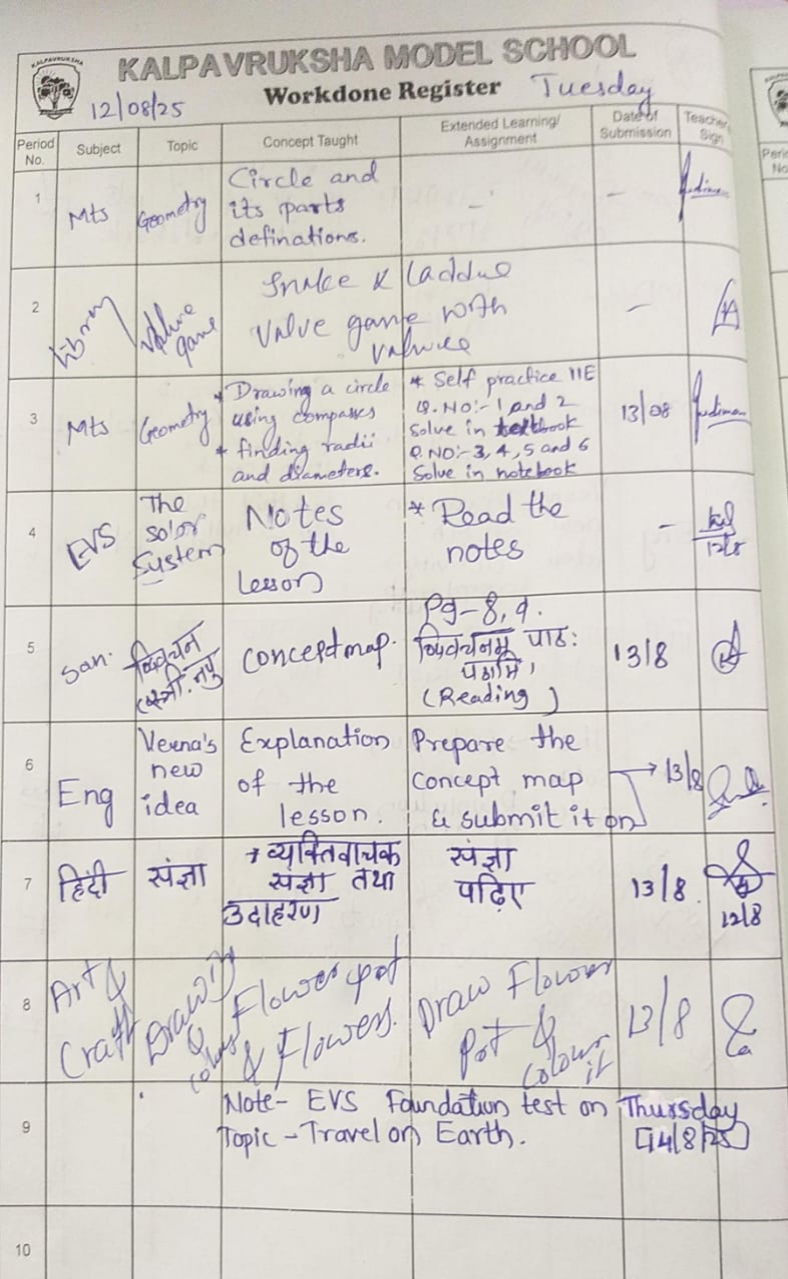 KALPAVRUKSHA
KALPAVRUKSHA MODEL SCHOOL
12/08/25 Workdone Register Tuesday
Period No. Subject Topic Concept Taught Extended Learning/ Assignment Date of Submission Teacher Sign
1 Mts Geometry Circle and
its parts
definations. - -
2 Library Value game Snake & Laddue
Value game with
values -
3 Mts Geometry * Drawing a circle
using compasses
* finding radii
and diameters.
* Self practice 11E
Q.NO:- 1 and 2
Solve in textbook
Q.NO:- 3, 4, 5 and 6
Solve in notebook
13/08
4 EVS The
solar
System
Notes
of the
lesson
* Read the
notes
- 12/8
5 San. द्विवचन
(स्त्री. नपु
Concept map.
Pg-8, 9.
द्विवचनम् पाठः
पठामि।
(Reading)
13/8
6 Eng Veena's
new
idea
Explanation
of the
lesson.
Prepare the
concept map
& submit it on
→ 13/8
7 हिंदी संज्ञा
→ व्यक्तिवाचक
संज्ञा तथा
उदाहरण
संज्ञा
पढ़िए
13/8.
12/8
8 Art &
Craft
Drawing
&
colour
Flower pot
& Flowers.
Draw Flower
Pot &
colour
it
13/8
9 Note- EVS Foundation test on Thursday
Topic - Travel on Earth. [14/8/25]
10